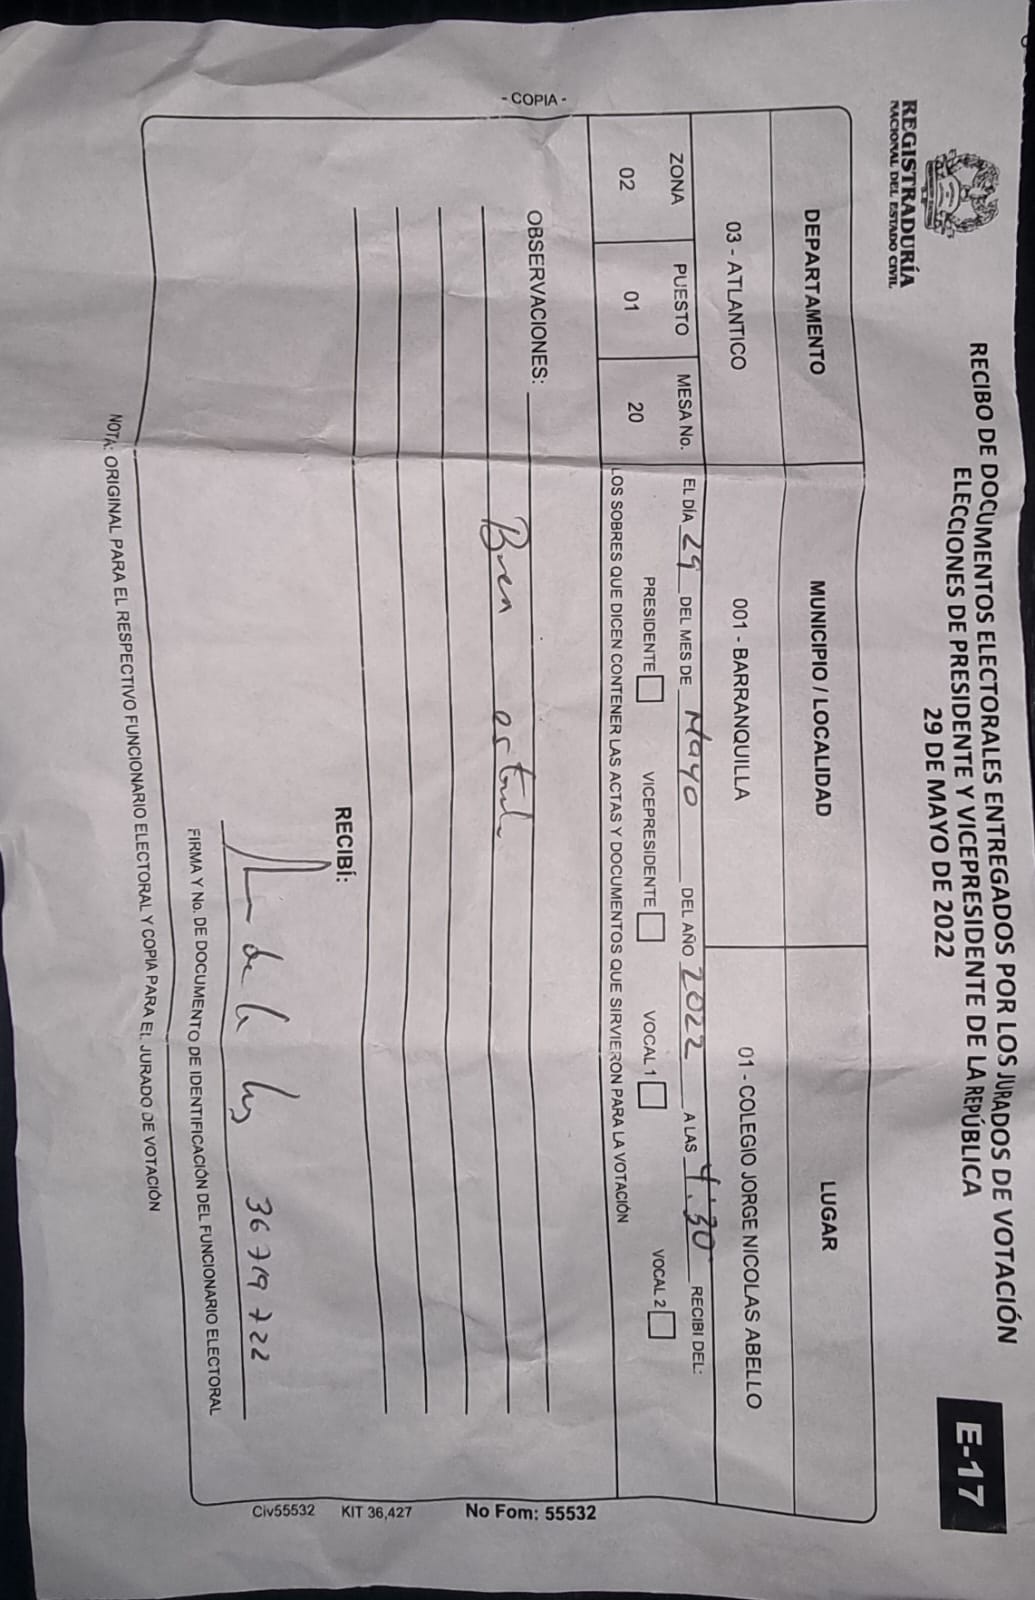 REGISTRADURÍA
NACIONAL DEL ESTADO CIVIL
RECIBO DE DOCUMENTOS ELECTORALES ENTREGADOS POR LOS JURADOS DE VOTACIÓN
ELECCIONES DE PRESIDENTE Y VICEPRESIDENTE DE LA REPÚBLICA
29 DE MAYO DE 2022
E-17
DEPARTAMENTO MUNICIPIO / LOCALIDAD LUGAR
03 - ATLANTICO 001 - BARRANQUILLA 01 - COLEGIO JORGE NICOLAS ABELLO
ZONA PUESTO MESA No. EL DÍA 29 DEL MES DE Mayo DEL AÑO 2022 A LAS 4:30 RECIBI DEL:
02 01 20 PRESIDENTE VICEPRESIDENTE VOCAL 1 VOCAL 2
LOS SOBRES QUE DICEN CONTENER LAS ACTAS Y DOCUMENTOS QUE SIRVIERON PARA LA VOTACIÓN
OBSERVACIONES:
Buen estado
RECIBÍ:
de la 36719722
FIRMA Y No. DE DOCUMENTO DE IDENTIFICACIÓN DEL FUNCIONARIO ELECTORAL
NOTA: ORIGINAL PARA EL RESPECTIVO FUNCIONARIO ELECTORAL Y COPIA PARA EL JURADO DE VOTACIÓN
- COPIA -
No Fom: 55532
KIT 36,427
Civ55532